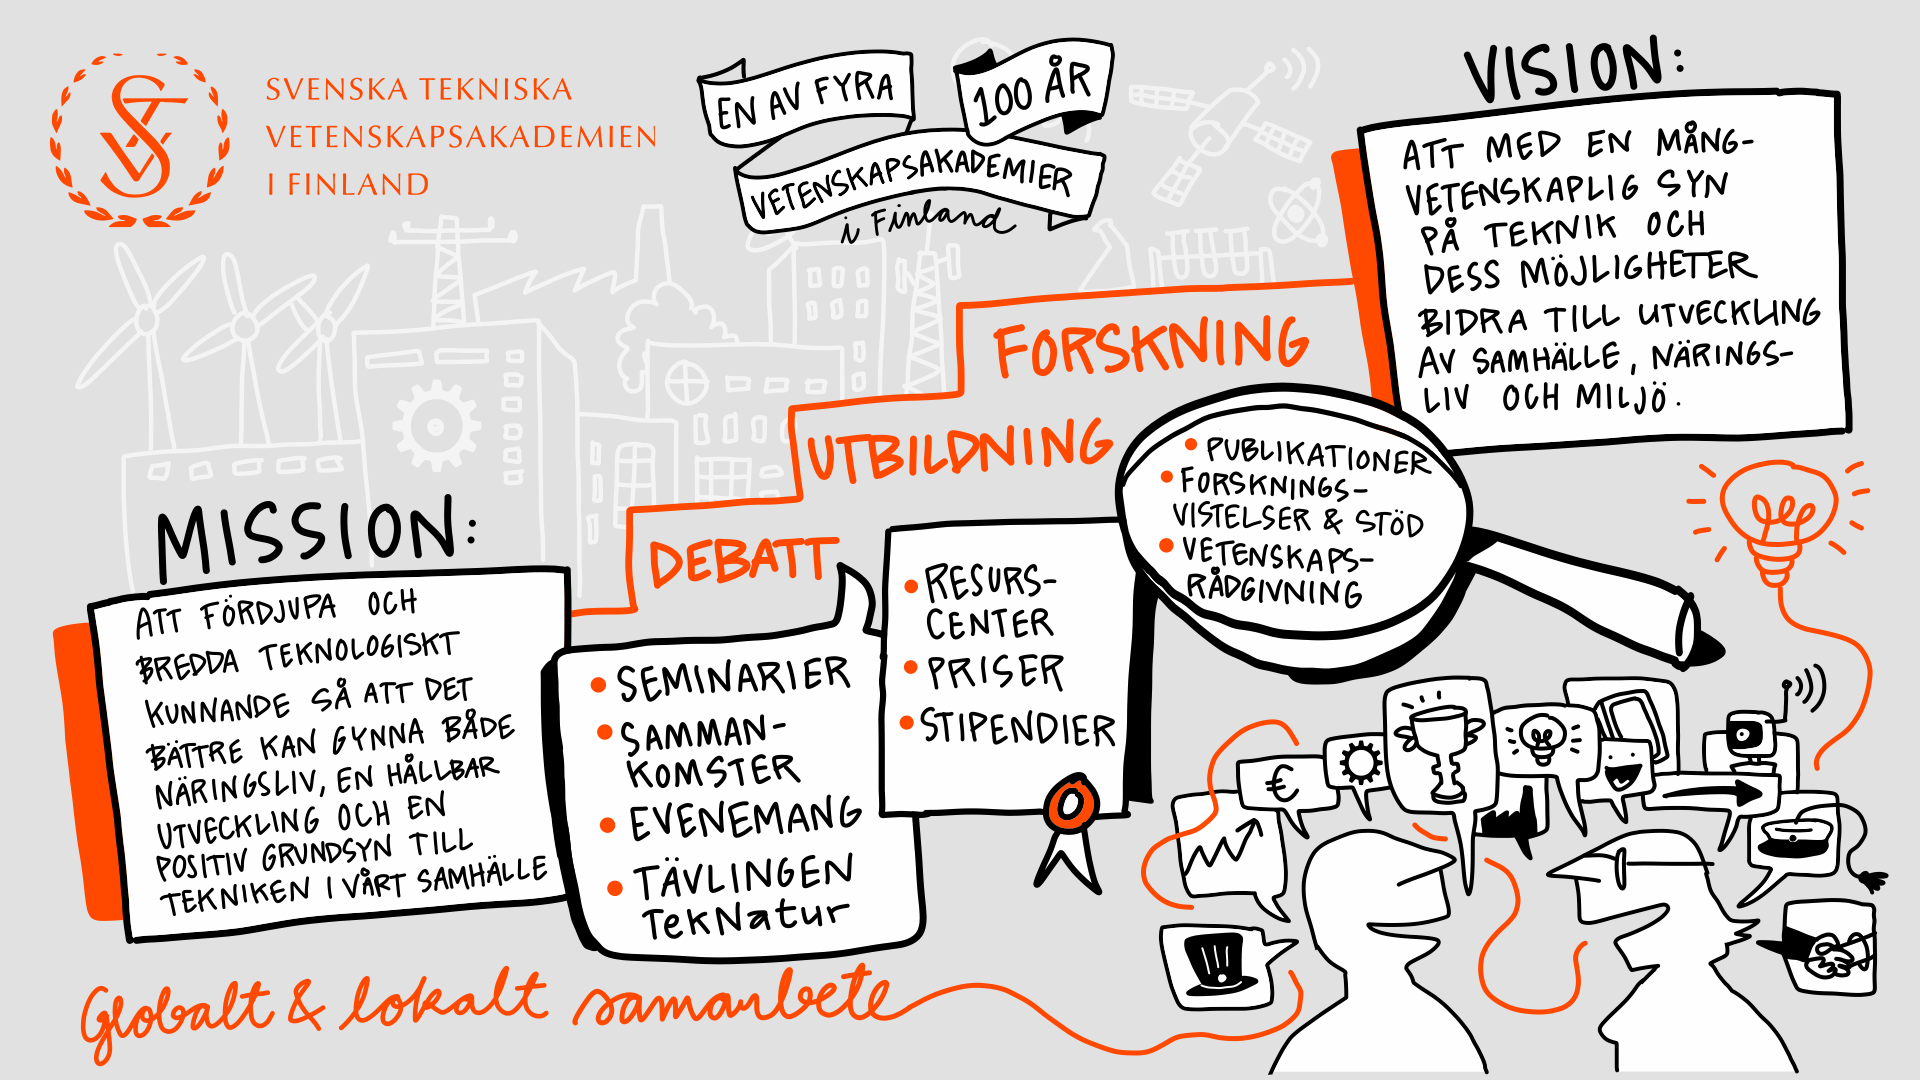 SVENSKA TEKNISKA
VETENSKAPSAKADEMIEN
I FINLAND
EN AV FYRA
VETENSKAPSAKADEMIER
i Finland
100 ÅR
VISION:
ATT MED EN MÅNG-
VETENSKAPLIG SYN
PÅ TEKNIK OCH
DESS MÖJLIGHETER
BIDRA TILL UTVECKLING
AV SAMHÄLLE, NÄRINGS-
LIV OCH MILJÖ.
MISSION:
ATT FÖRDJUPA OCH
BREDDA TEKNOLOGISKT
KUNNANDE SÅ ATT DET
BÄTTRE KAN GYNNA BÅDE
NÄRINGSLIV, EN HÅLLBAR
UTVECKLING OCH EN
POSITIV GRUNDSYN TILL
TEKNIKEN I VÅRT SAMHÄLLE
DEBATT
• SEMINARIER
• SAMMAN-
KOMSTER
• EVENEMANG
• TÄVLINGEN
TekNatur
UTBILDNING
• RESURS-
CENTER
• PRISER
• STIPENDIER
FORSKNING
• PUBLIKATIONER
• FORSKNINGS-
VISTELSER & STÖD
• VETENSKAPS-
RÅDGIVNING
€
Globalt & lokalt samarbete